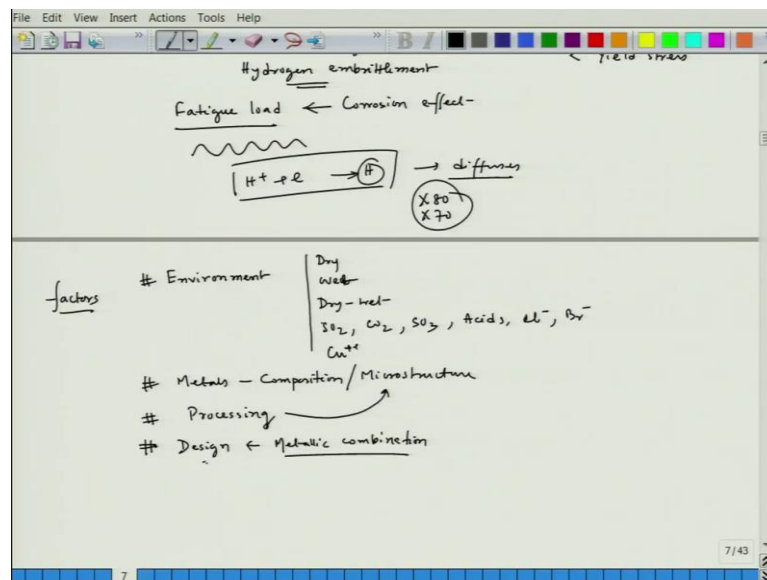 File Edit View Insert Actions Tools Help
Hydrogen embrittlement
< Yield stress
Fatigue load ← Corrosion effect
H⁺ + e → H → diffuses
X80
X70
factors
# Environment
Dry
Wet
Dry-wet
SO₂, CO₂, SO₃, Acids, Cl⁻, Br⁻
Cu⁺⁺
# Metals - Composition/Microstructure
# Processing
# Design ← Metallic combination
7/43
7